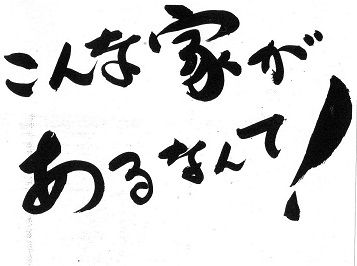 こんな家が
あるなんて!